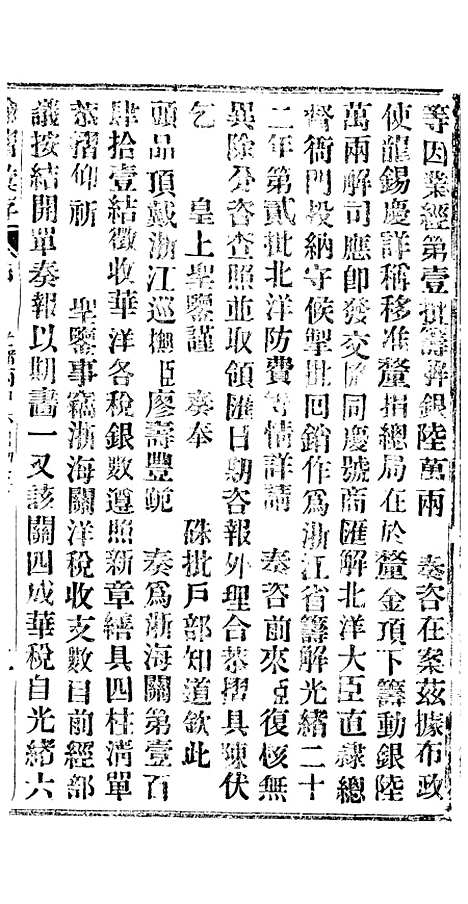 等因業經第壹批籌解銀陸萬兩　奏咨在案茲據布政
使龍錫慶詳稱移准釐捐總局在於釐金項下籌動銀陸
萬兩解司應卽發交協同慶號商匯解北洋大臣直隸總
督衙門投納守候掣批回銷作爲浙江省籌解光緒二十
二年第貳批北洋防費等情詳請　奏咨前來臣復核無
異除分咨查照並取領匯日期咨報外理合恭摺具陳伏
乞　皇上聖鑒謹　奏奉　硃批戶部知道欽此
頭品頂戴浙江巡撫臣廖壽豐跪　奏爲浙海關第壹百
肆拾壹結徵收華洋各稅銀數遵照新章繕具四柱淸單
恭摺仰祈　聖鑒事竊浙海關洋稅收支數目前經部
議按結開單奏報以期畫一又該關四成華稅自光緒六